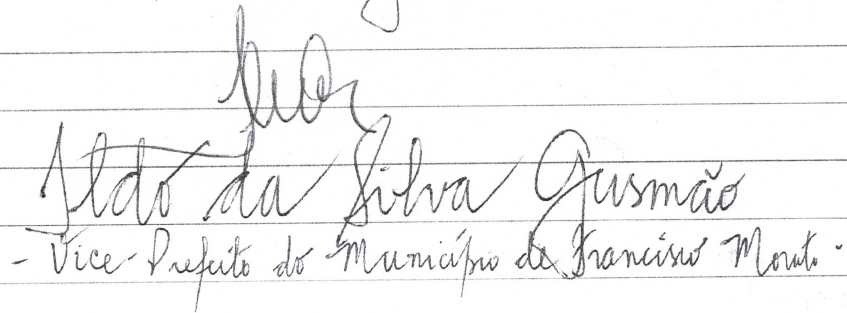 Ildo da Silva Gusmão
- Vice-Prefeito do Município de Francisco Morato -